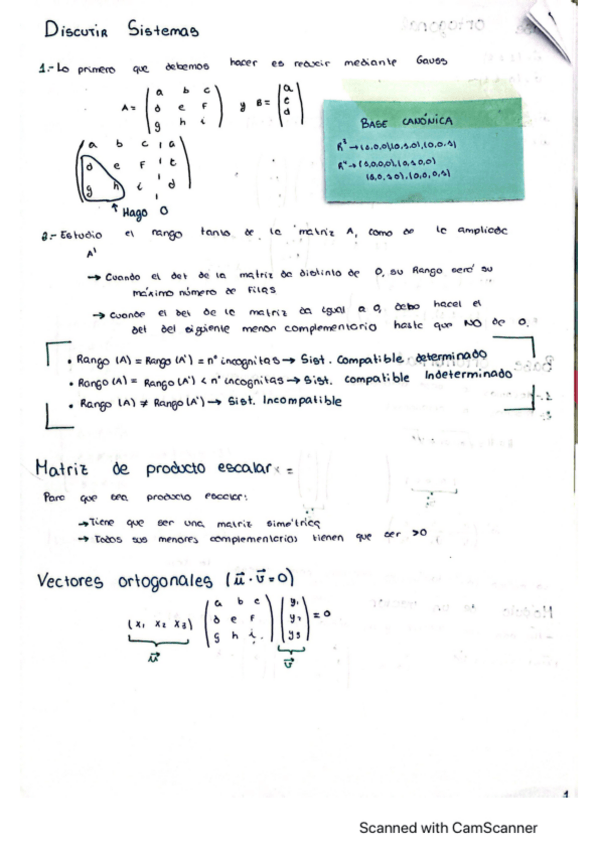 Discutir Sistemas
1.- Lo primero que debemos hacer es reducir mediante Gauss
A= (a b c / d e F / g h i) y B= (a / c / d)
BASE CANÓNICA
(a b c | a / d e F | t / g h i | d)
Hago 0
2.- Estudio el rango tanto de la matriz A, como de la ampliada
A'
→ Cuando el det de la matriz da distinto de 0, su Rango será su
máximo número de Filas
→ Cuando el det de la matriz da igual a 0, debo hacer el
det del siguiente menor complementario hasta que NO de 0.
• Rango (A) = Rango (A') = nº incognitas → Sist. Compatible determinado
• Rango (A) = Rango (A') < nº incognitas → Sist. compatible Indeterminado
• Rango (A) ≠ Rango (A') → Sist. Incompatible
Matriz de producto escalar < =
Para que sea producto escalar:
→ Tiene que ser una matriz simétrica
→ Todos sus menores complementarios tienen que ser >0
Vectores ortogonales (u⃗ · v⃗ = 0)
(x₁ x₂ x₃) (a b c / d e F / g h i) (y₁ / y₂ / y₃) = 0
u⃗ v⃗
1
Scanned with CamScanner